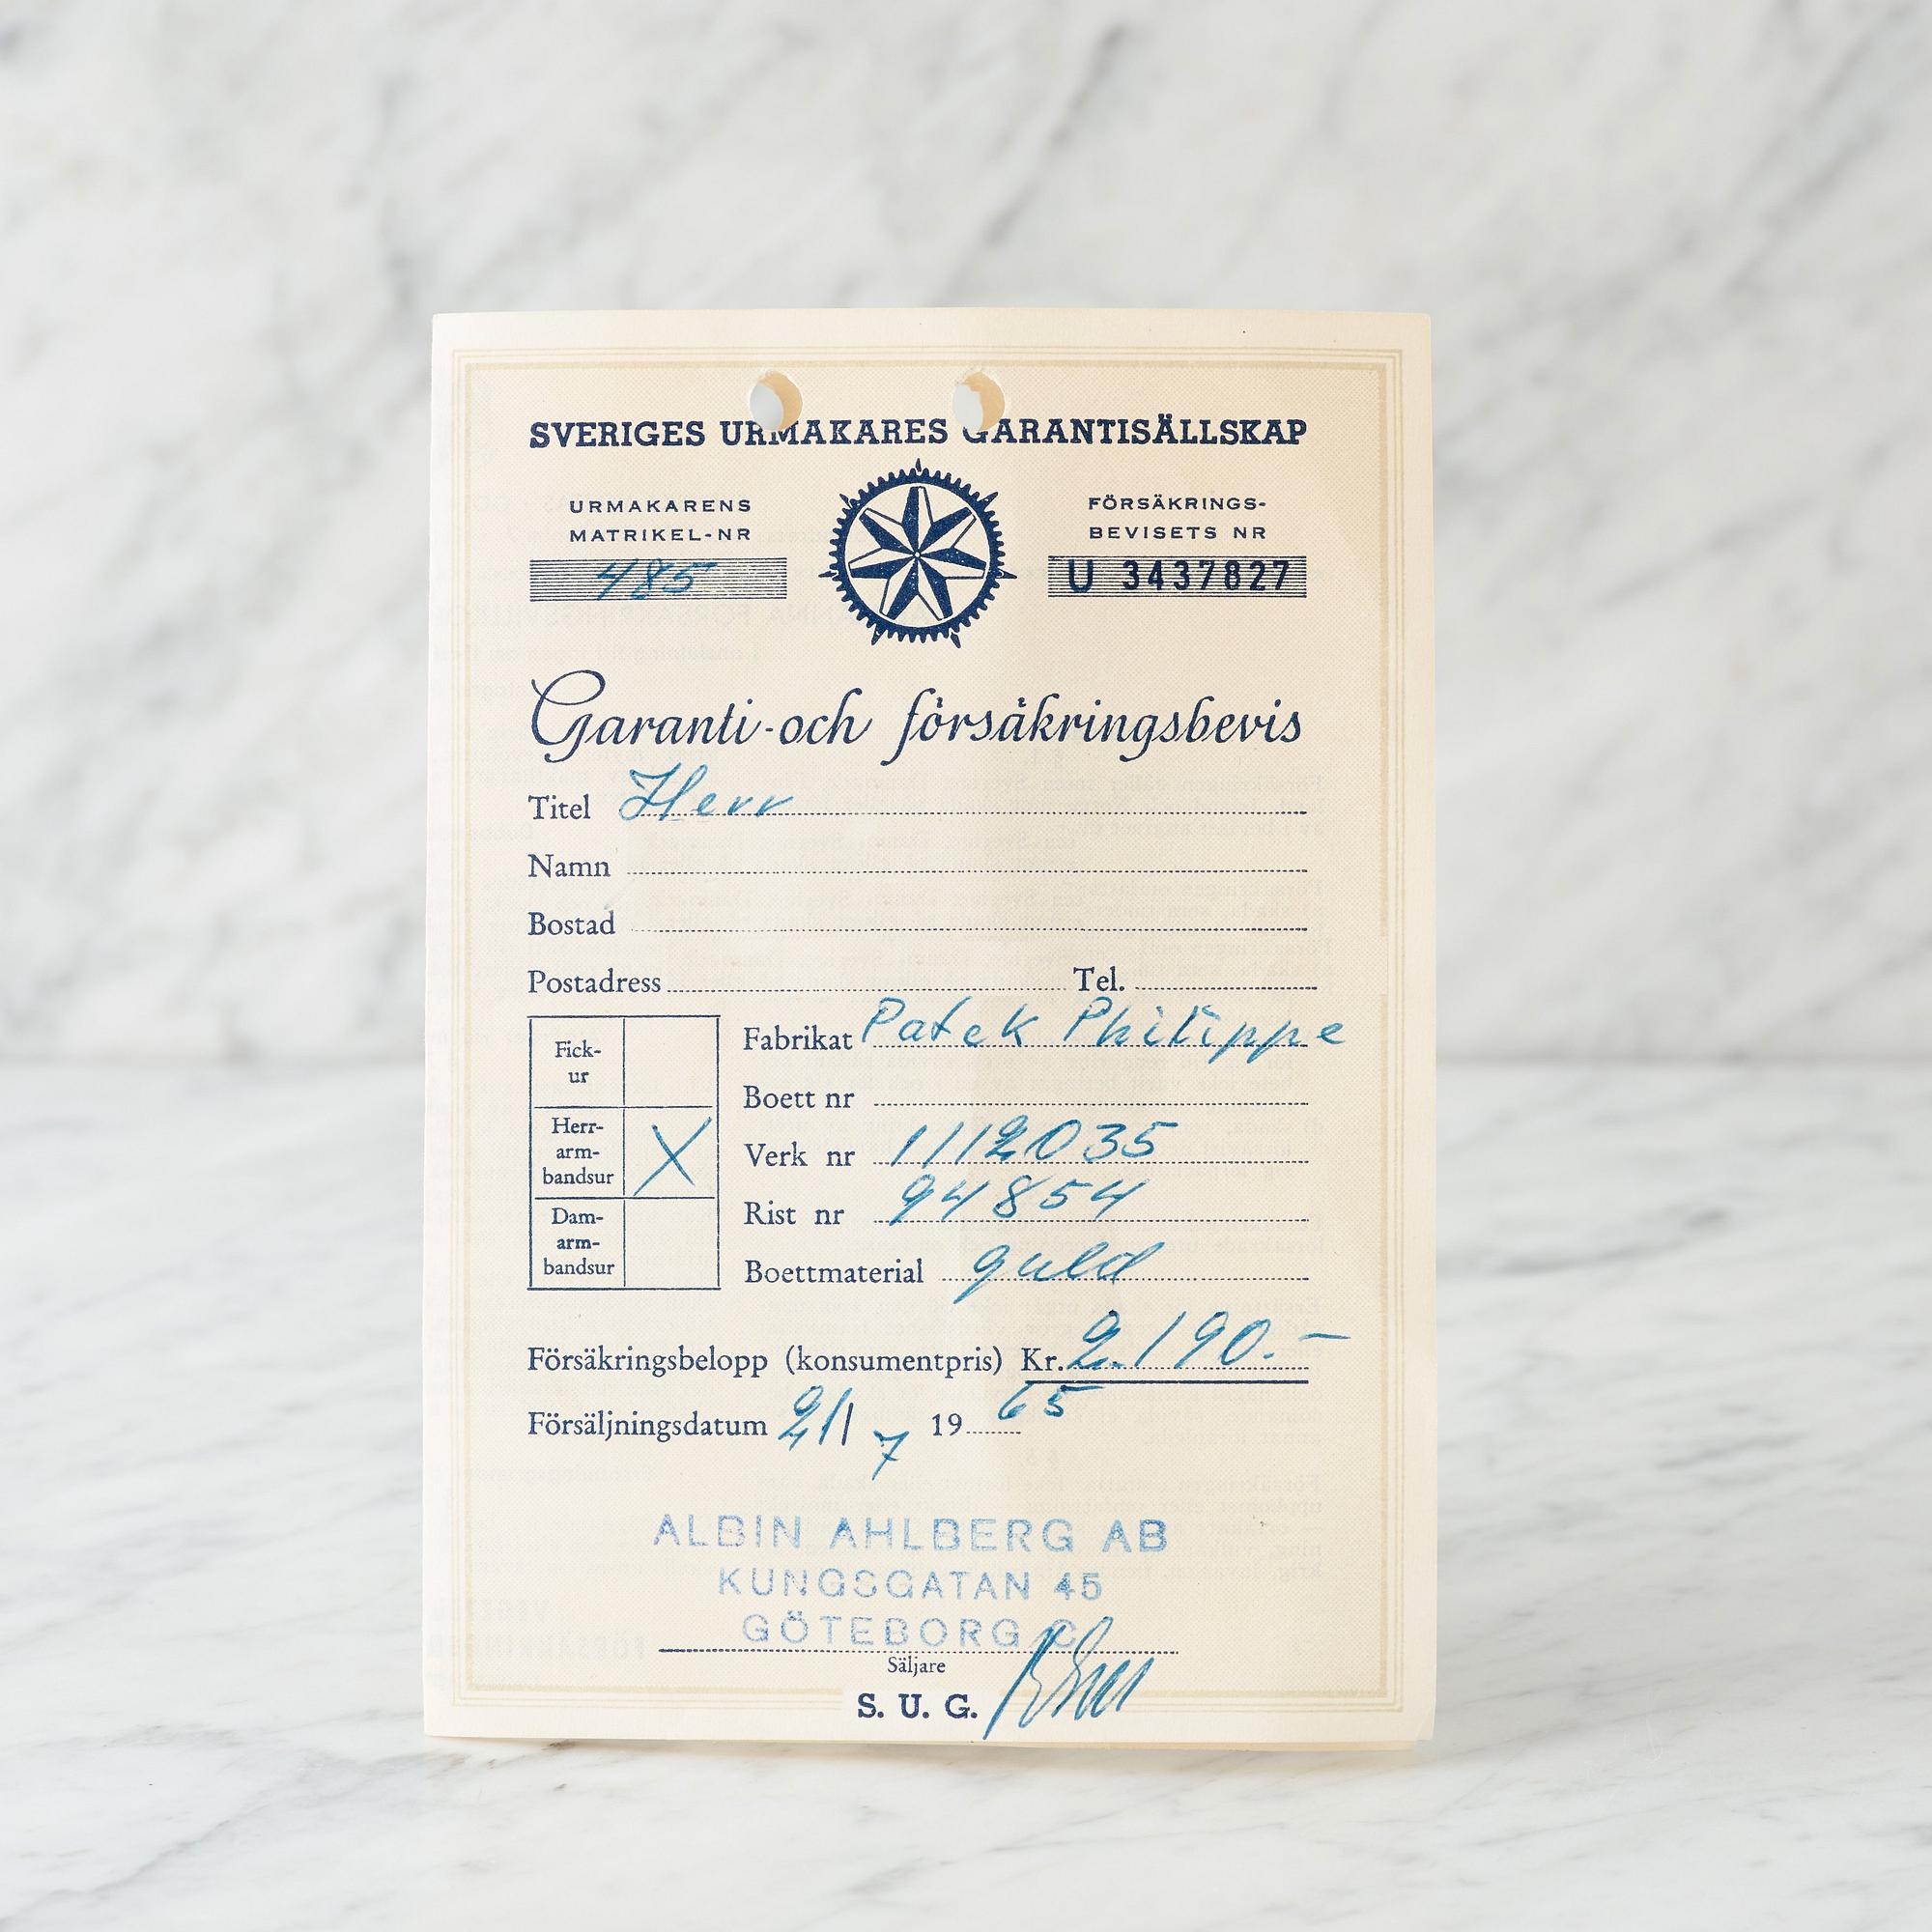 SVERIGES URMAKARES GARANTISÄLLSKAP
URMAKARENS
MATRIKEL-NR
485
FÖRSÄKRINGS-
BEVISETS NR
U 3437827
Garanti-och försäkringsbevis
Titel Herr
Namn
Bostad
Postadress Tel.
Fick-
ur
Herr-
arm-
bandsur X
Dam-
arm-
bandsur
Fabrikat Patek Philippe
Boett nr
Verk nr 1112035
Rist nr 94854
Boettmaterial guld
Försäkringsbelopp (konsumentpris) Kr. 2.190.-
Försäljningsdatum 21/7 1965
ALBIN AHLBERG AB
KUNGSGATAN 45
GÖTEBORG C
Säljare
S. U. G.